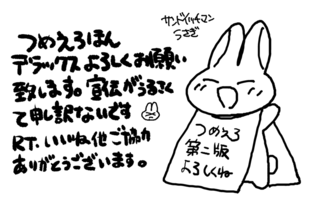 サンドイッチマン
うさぎ
つめえろほん
デラックスよろしくお願い
致します。宣伝がうるさく
て申し訳ないです
RT、いいね他ご協力
ありがとうございます。
つめえろ
第二版
よろしくね